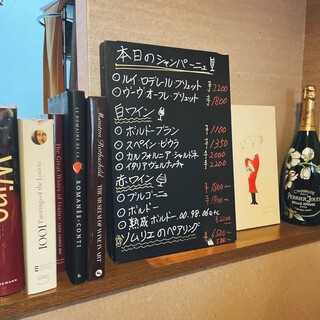 Wine
1001
Tastings of the Louvre
The Great Wines of France
LE DOMAINE DE LA
ROMANÉE-CONTI
Mouton Rothschild
THE MUSEUM OF WINE IN ART
本日のシャンパーニュ
○ルイ・ロデレール・ブリュット ¥2200
○ヴーヴ オーフレ・ブリュット ¥1800
白ワイン
○ボルドー・ブラン ¥1100
○スペイン・ビウラ ¥1350
○カルフォルニア・シャルドネ ¥2000
○イタリアヴェルナッチャ ¥2200
赤ワイン
○ブルゴーニュ
○ボルドー
○熟成ボルドー.00.98.06 etc
ソムリエのペアリング
¥6500~
CHAMPAGNE
PERRIER-JOUËT
BELLE EPOQUE